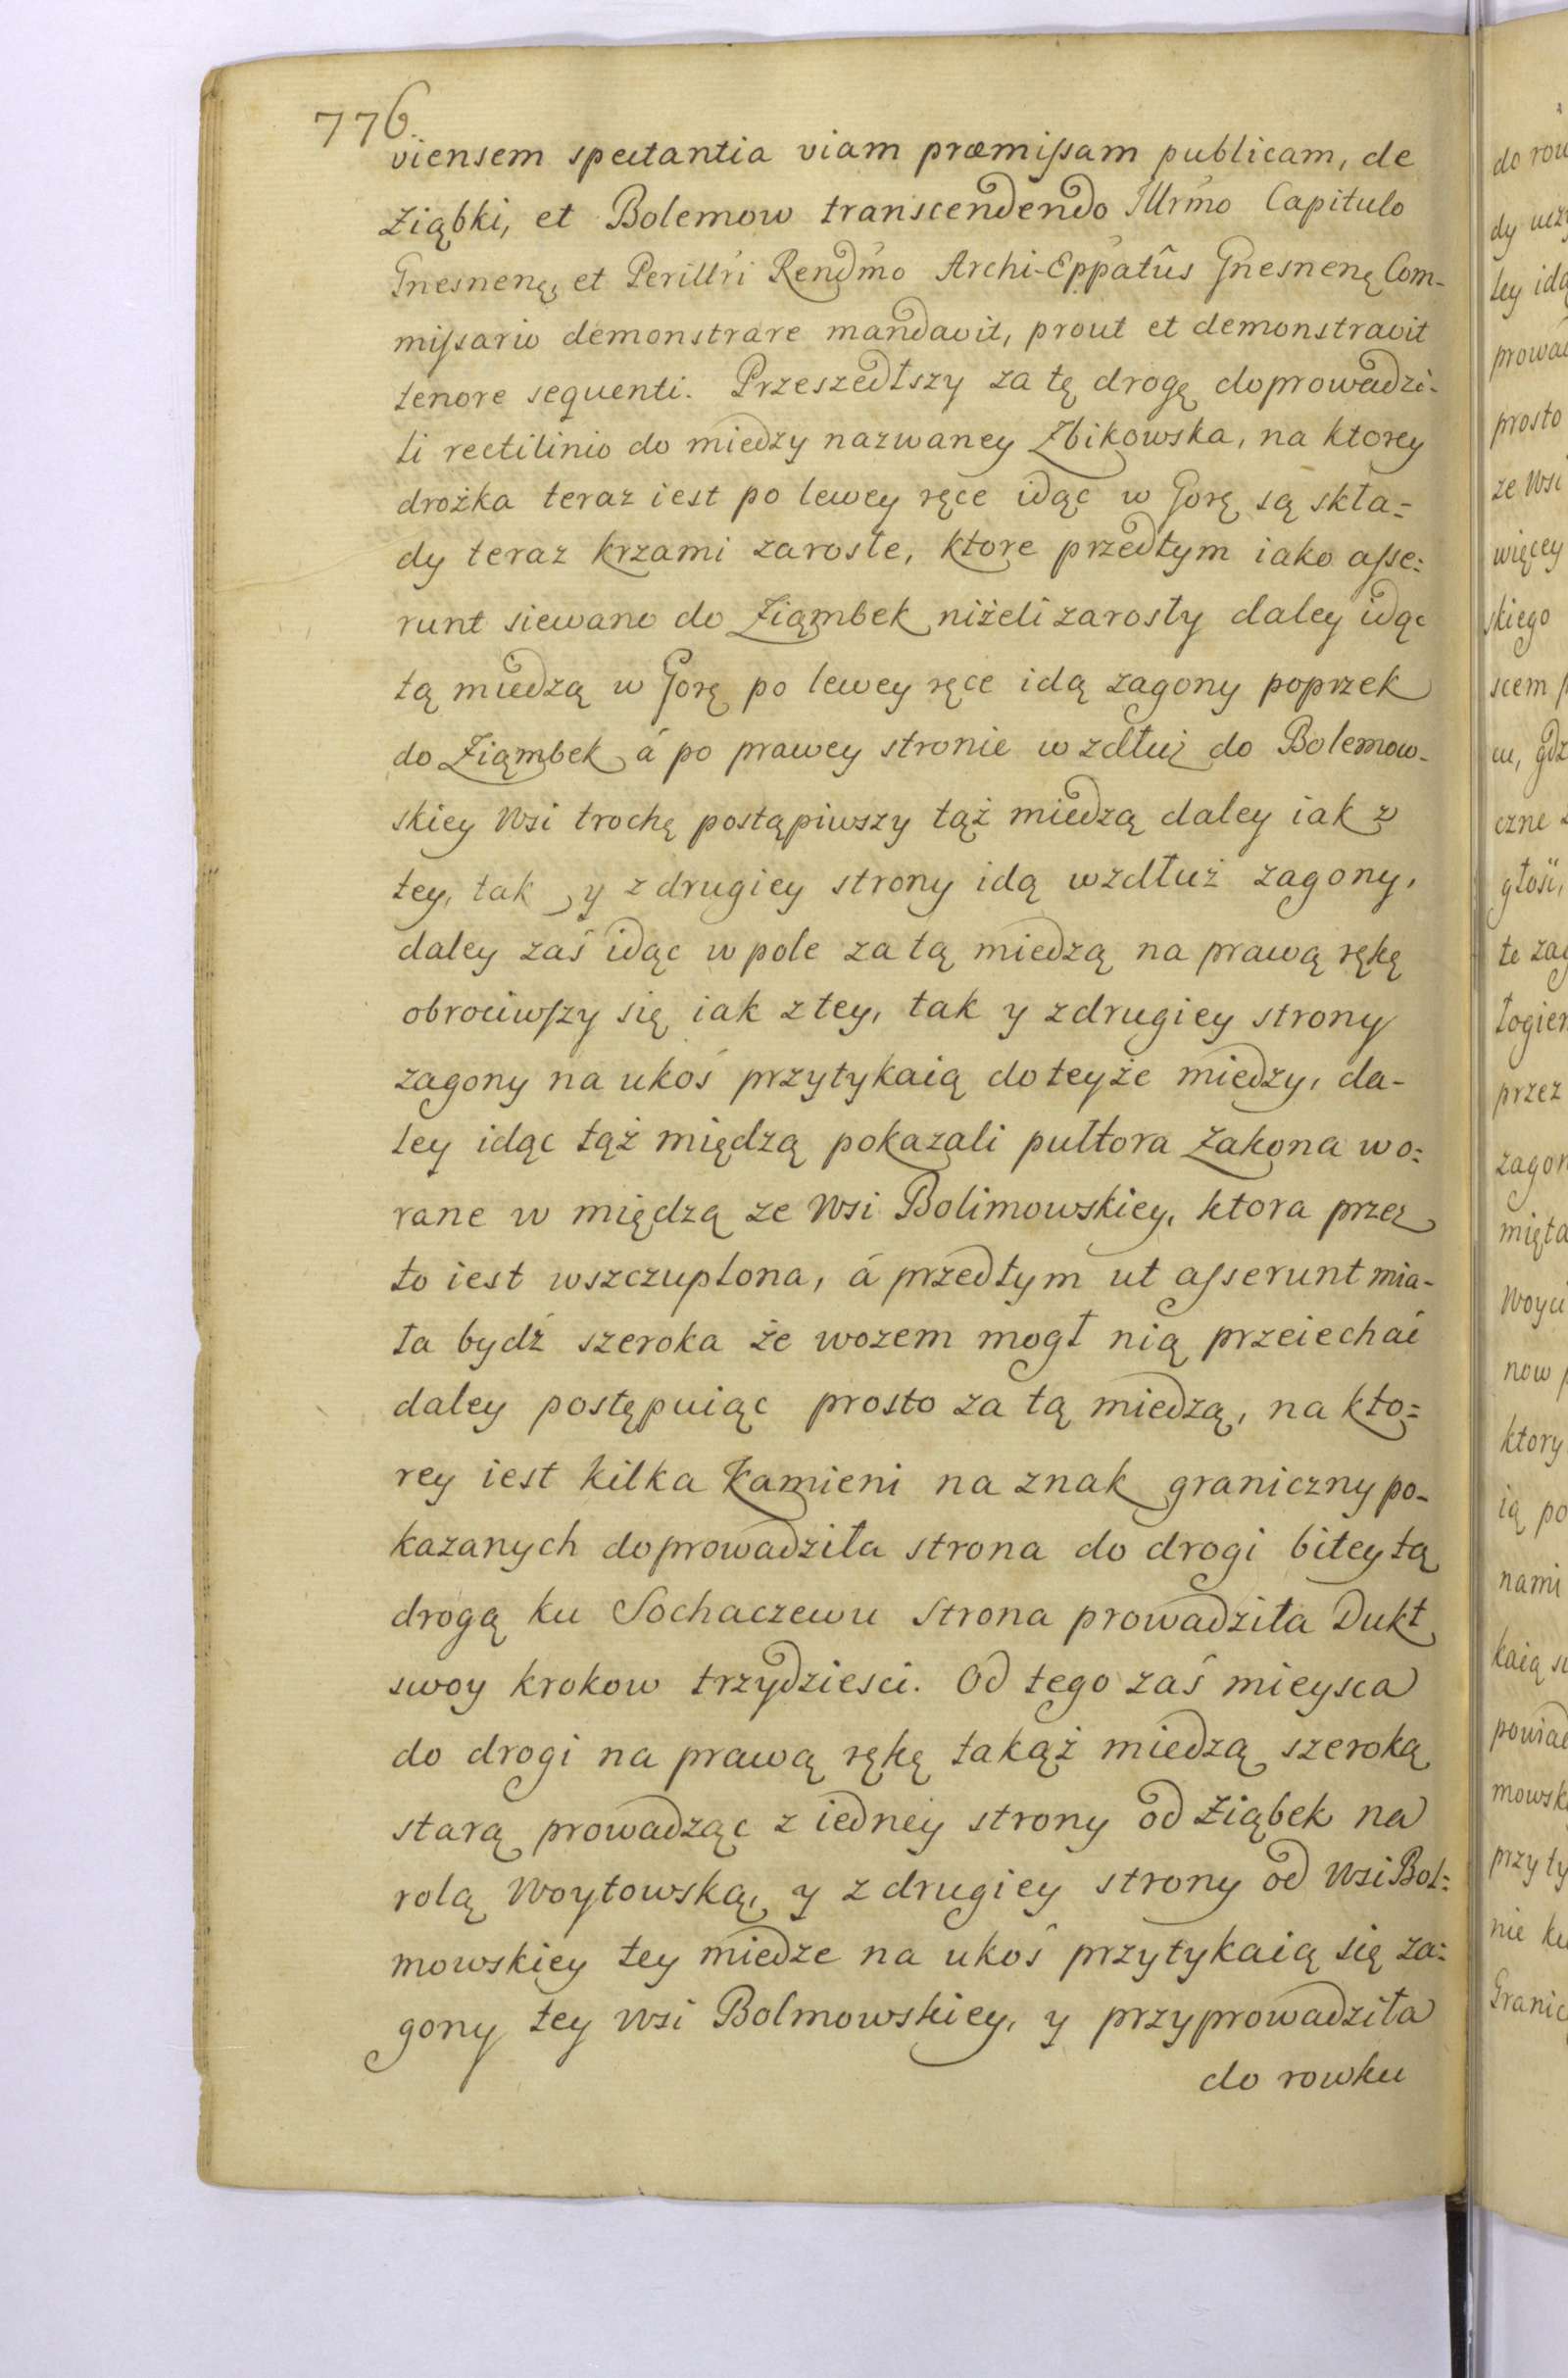 776.
viensem spectantia viam præmissam publicam, de
Ziąbki, et Bolemow transcendendo Illrmo Capitulo
Gnesnenę, et Perillri Rendmo Archi-Eppatûs Gnesnenę Com-
missario demonstrare mandavit, prout et demonstravit
tenore sequenti. Przeszedłszy za tę drogę doprowadzi-
li rectilinio do miedzy nazwaney Zbikowska, na ktorey
drożka teraz iest po lewey ręce idąc w Gorę są skła=
dy teraz krzami zarosłe, ktore przedtym iako asse:
runt siewano do Ziąmbek niżeli zarosły daley idąc
tą miedzą w Gorę po lewey ręce idą zagony poprzek
do Ziąmbek á po prawey stronie wzdłuż do Bolemow-
skiey Wsi trochę postąpiwszy tąż miedzą daley iak z
tey, tak y z drugiey strony idą wzdłuż zagony,
daley zaś idąc w pole za tą miedzą na prawą rękę
obrociwszy się iak z tey, tak y z drugiey strony
zagony na ukoś przytykaią do teyże miedzy, da-
ley idąc tąż między pokazali pułtora Zakona wo:
rane w międzą ze Wsi Bolimowskiey, ktora przez
to iest wszczuplona, á przedtym ut asserunt mia-
ła bydź szeroka że wozem mogł nią przeiechać
daley postępuiąc prosto za tą miedzą, na kto=
rey iest kilka Kamieni na znak graniczny po-
kazanych doprowadziła strona do drogi bitey tą
drogą ku Sochaczewu Strona prowadziła Dukt
swoy krokow trzydziesci. Od tego zaś mieysca
do drogi na prawą rękę takąż miedzą szeroką
starą prowadząc z iedney strony od Ziąbek na
rolą Woytowską, y z drugiey strony od Wsi Bol:
mowskiey tey miedze na ukoś przytykaią się za:
gony tey Wsi Bolmowskiey, y przyprowadziła
do rowku